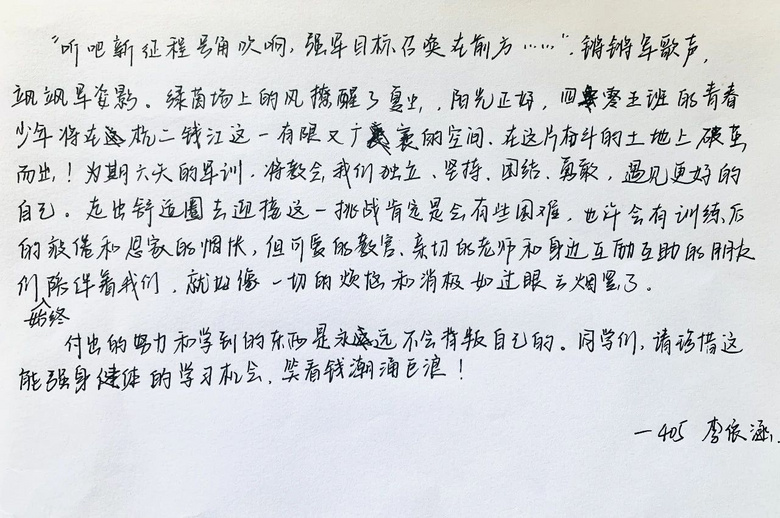 “听吧新征程号角吹响，强军目标召唤在前方……”，锵锵军歌声，
飒飒军姿影。绿茵场上的风撩醒了夏虫，阳光正好，四零五班的青春
少年将在杭二钱江这一有限又广袤的空间、在这片奋斗的土地上破茧
而出！为期六天的军训，将教会我们独立、坚持、团结、勇敢，遇见更好的
自己。走出舒适圈去迎接这一挑战肯定是会有些困难，也许会有训练后
的疲倦和思家的惆怅，但可爱的教官、亲切的老师和身边互励互助的朋友
们始终陪伴着我们，就好像一切的烦恼和消极如过眼云烟罢了。
付出的努力和学到的东西是永远不会背叛自己的。同学们，请珍惜这
能强身健体的学习机会，笑看钱潮涌巨浪！
—405 李依涵